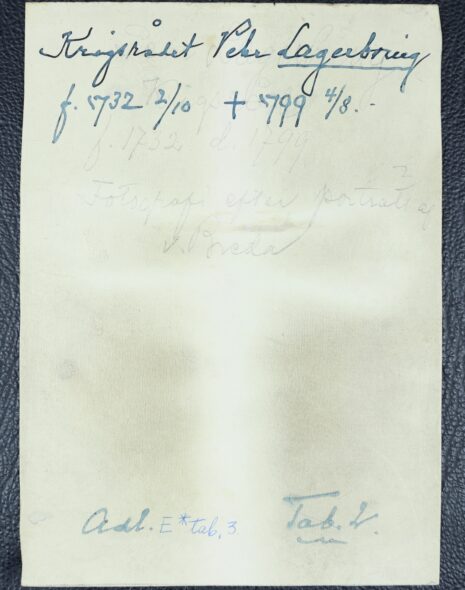 Krigsrådet Pehr Lagerbring
f. 1732 2/10 + 1799 4/8.-
f. 1732 d. 1799
Fotografi efter porträtt af
v. Breda
Adl. E* tab. 3
Tab. 2.